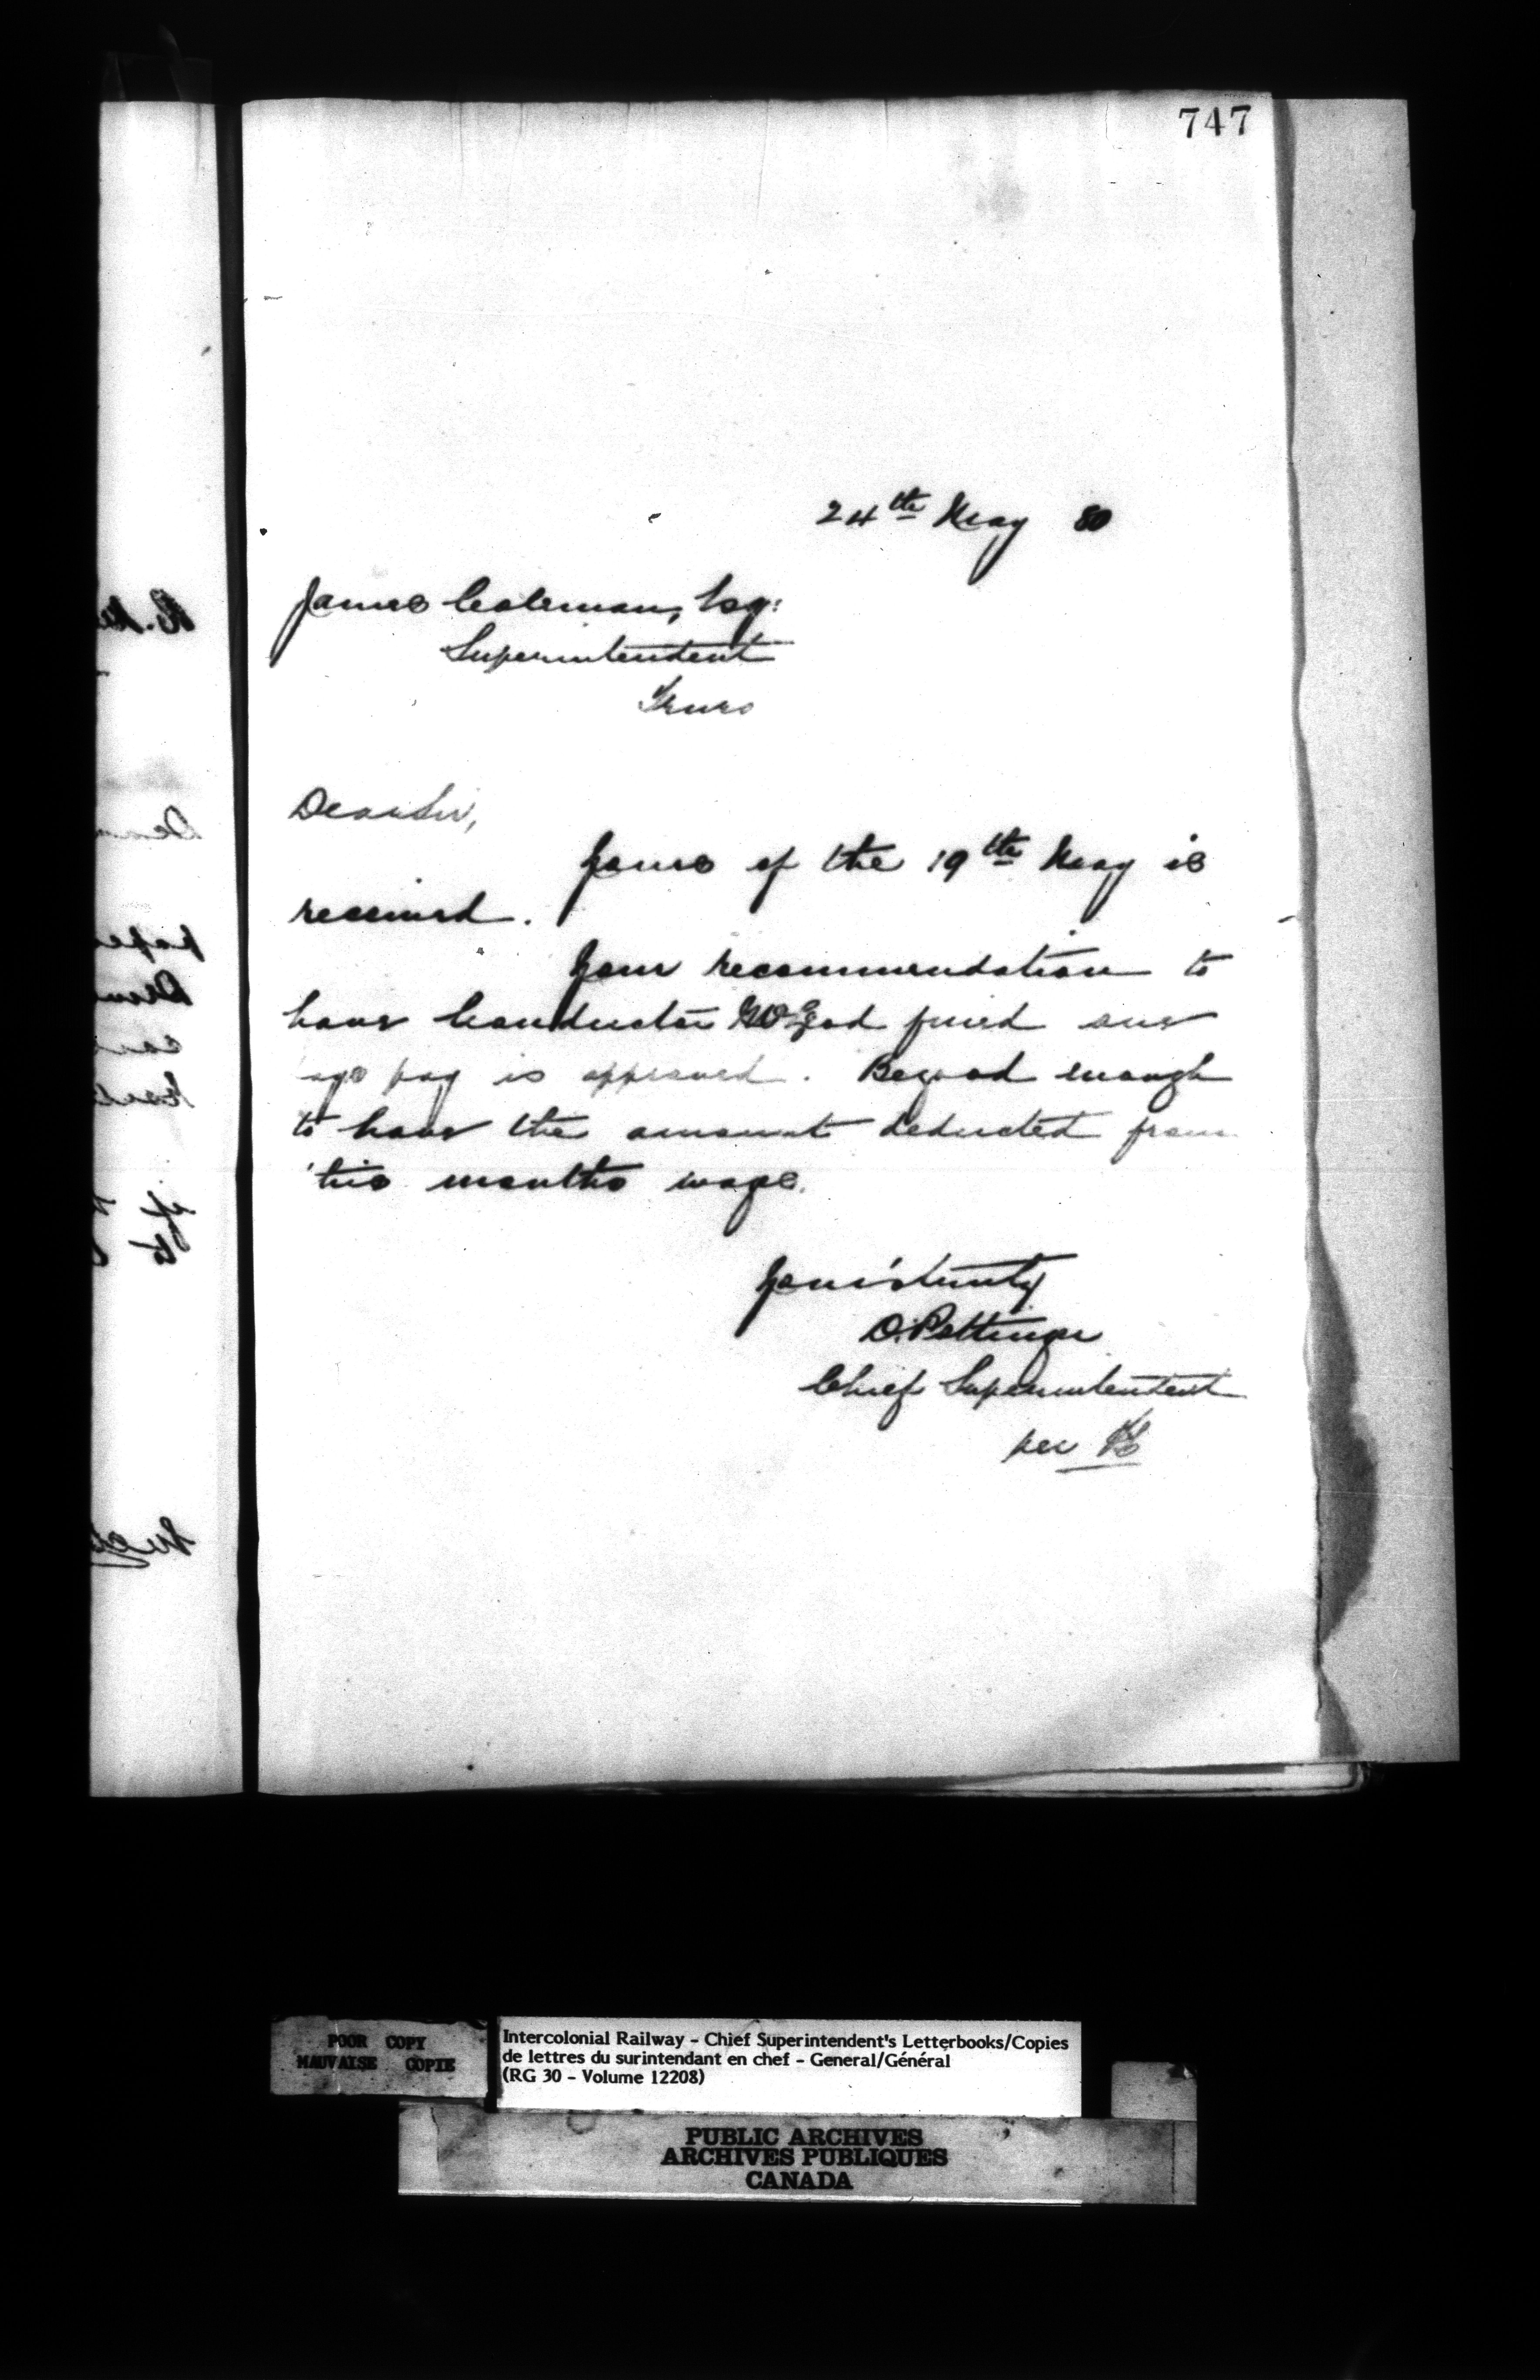 747
24th May 80
James Coleman, Esq:
Superintendent
Truro
Dear Sir,
Yours of the 19th May is
received.
Your recommendation to
have Conductor fined one
days pay is approved. Be good enough
to have the amount deducted from
his months wage.
Yours truly
D. Pottinger
Chief Superintendent
per
POOR COPY
MAUVAISE COPIE
Intercolonial Railway - Chief Superintendent's Letterbooks/Copies
de lettres du surintendant en chef - General/Général
(RG 30 - Volume 12208)
PUBLIC ARCHIVES
ARCHIVES PUBLIQUES
CANADA